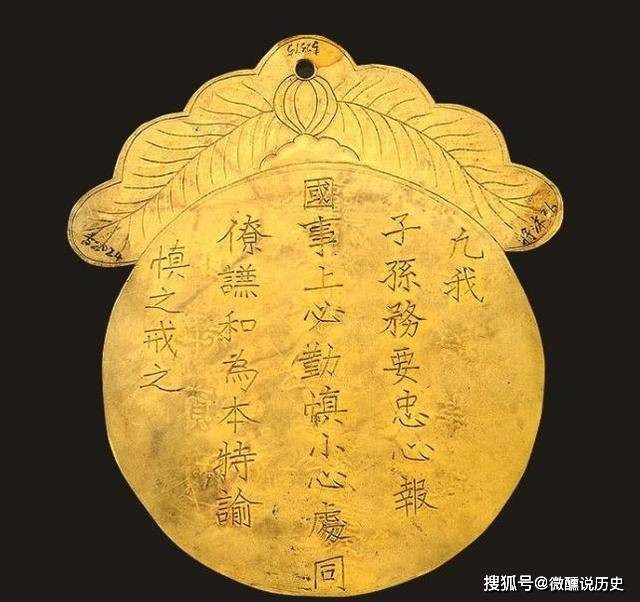 凢我
子孫務要忠心報
國事上必勤慎小心處同
僚謙和為本特諭
慎之戒之
搜狐号@微醺说历史